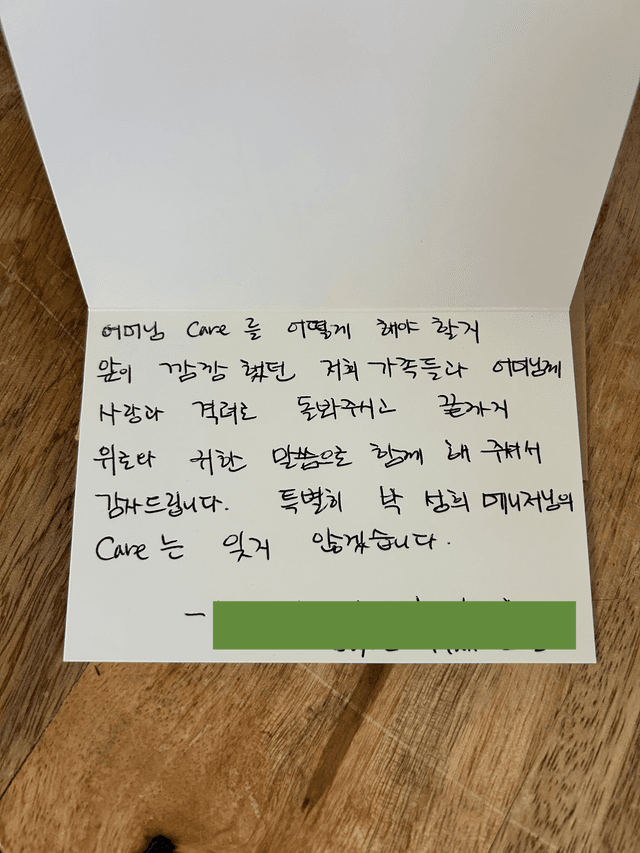 어머님 Care 를 어떻게 해야 할지
앞이 깜깜 했던 저희 가족들과 어머님께
사랑과 격려로 돌봐주시고 끝까지
위로와 귀한 말씀으로 함께 해 주셔서
감사드립니다. 특별히 박 성희 메니저님의
Care 는 잊지 않겠습니다.
—